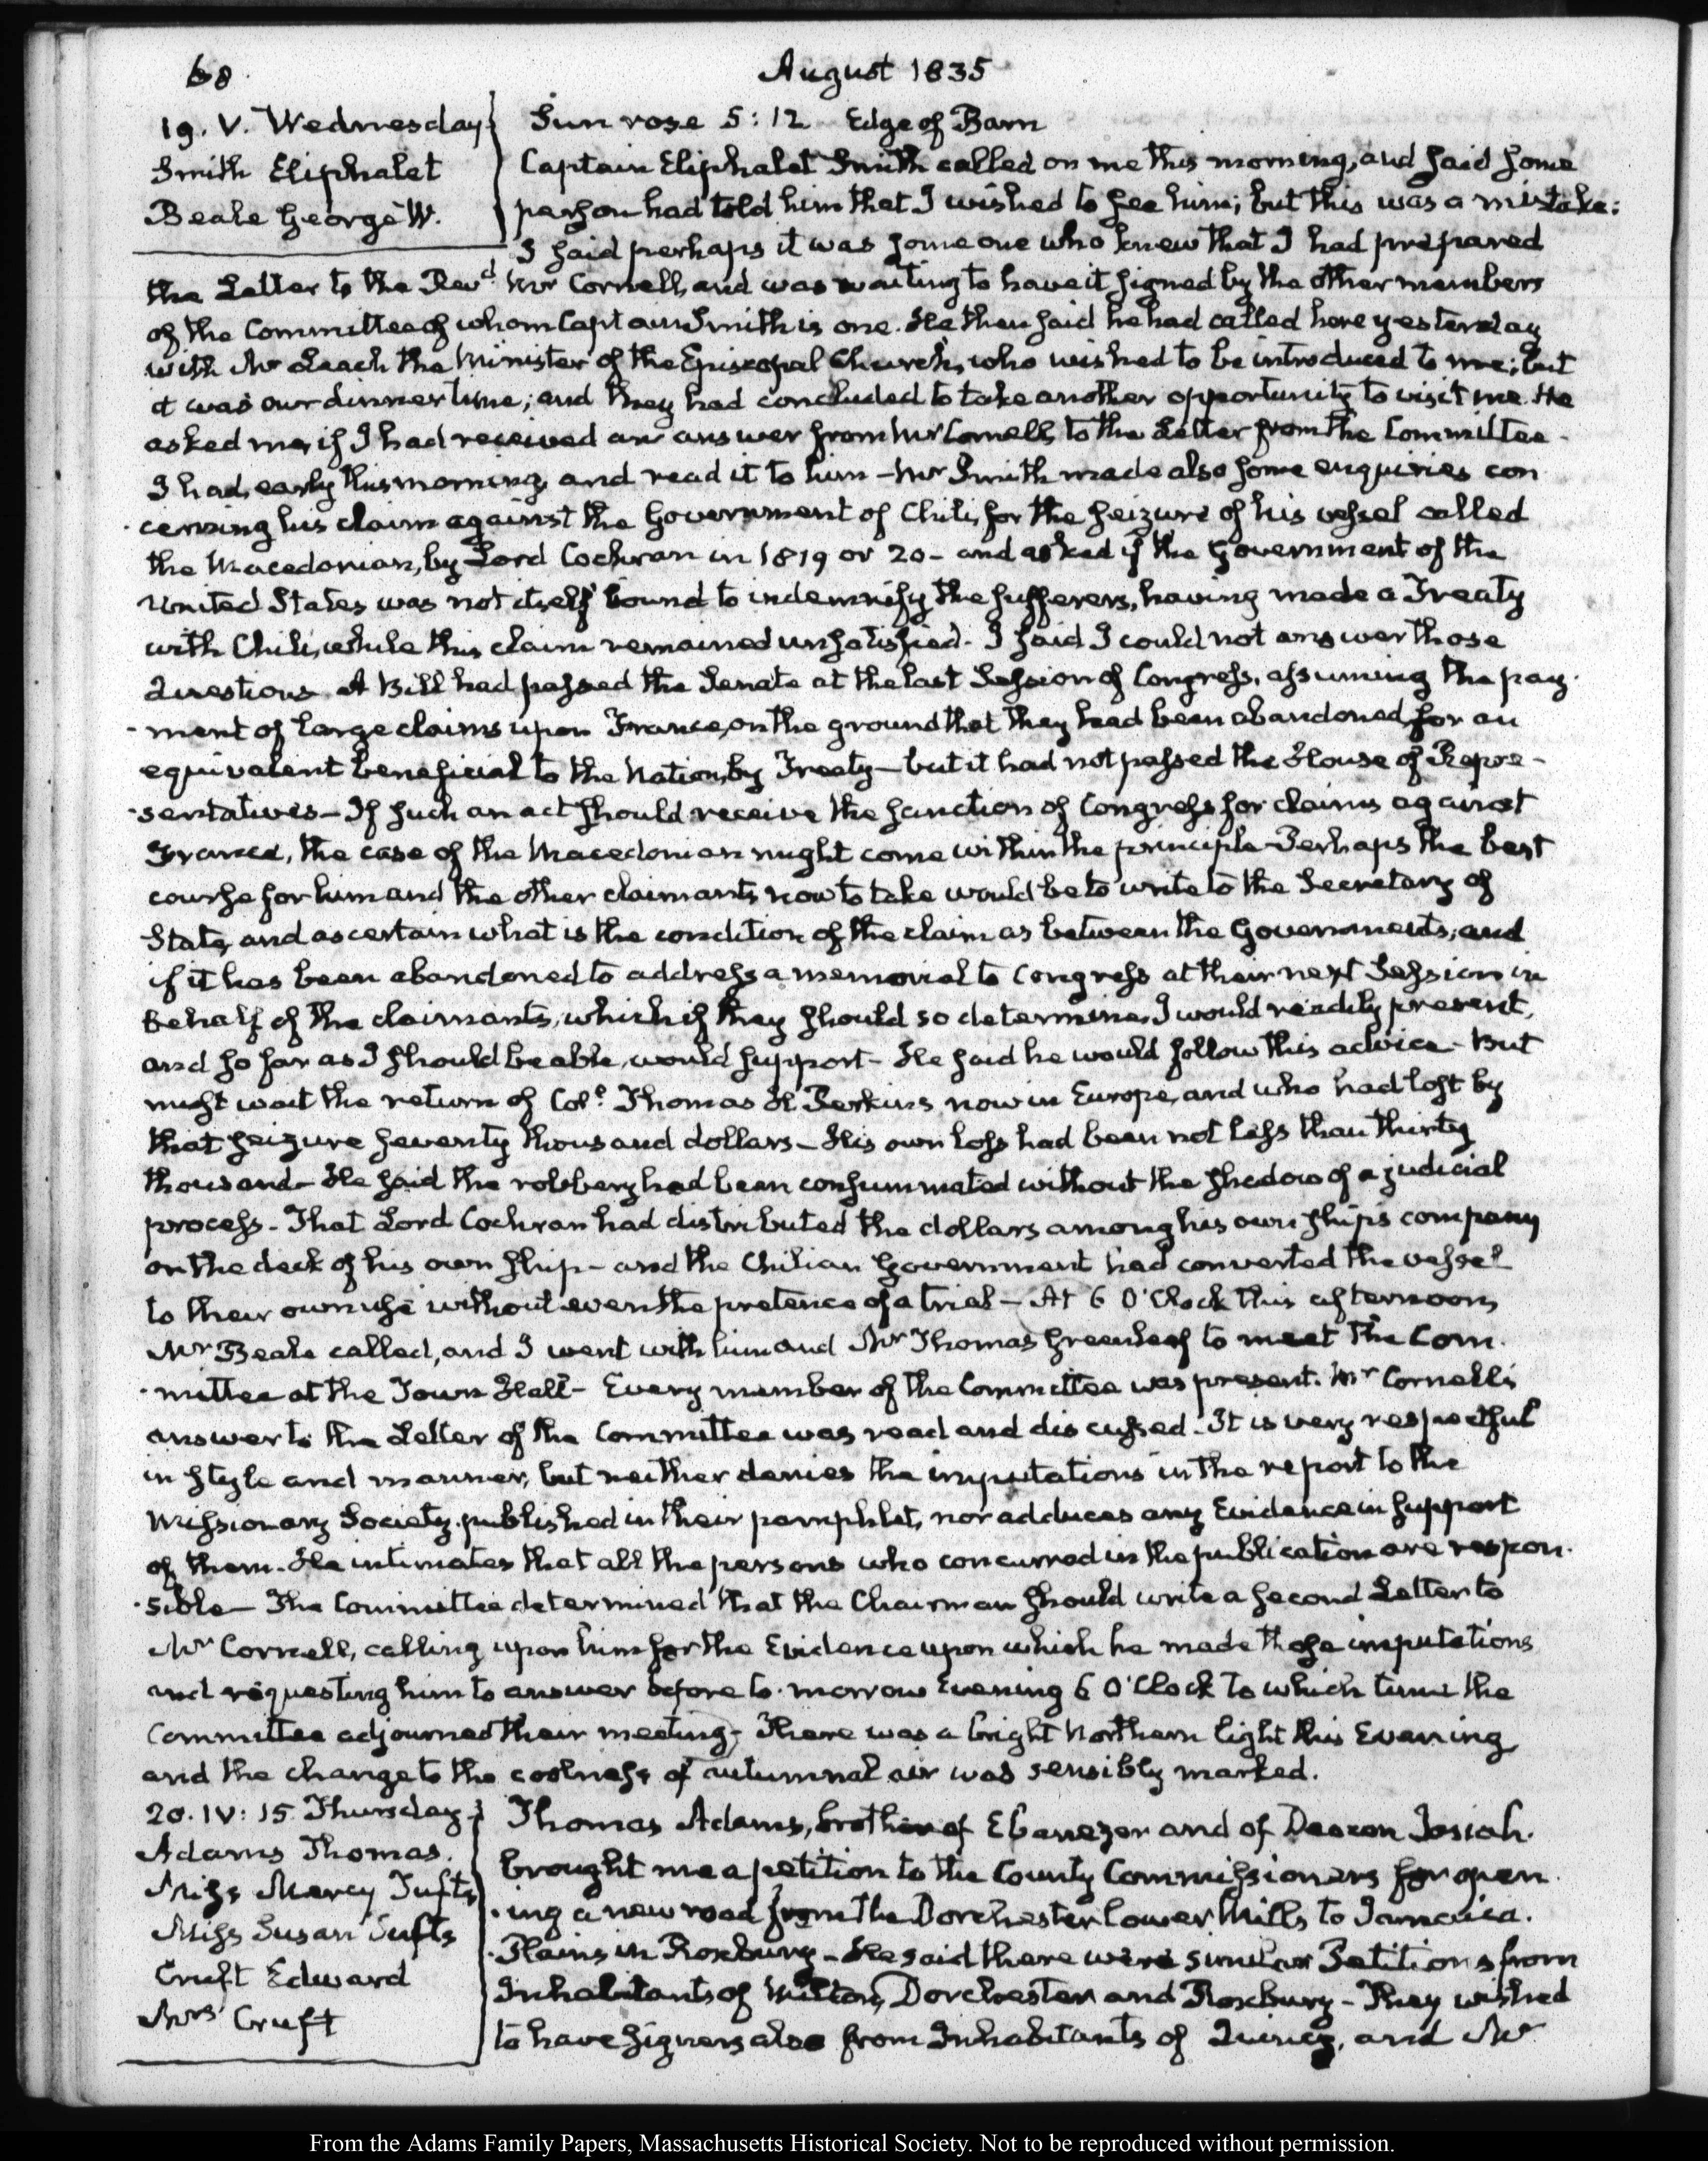 68
August 1835
19. V. Wednesday
Smith Eliphalet
Beale George W.
Sun rose 5:12 Edge of Barn
Captain Eliphalet Smith called on me this morning, and said some
person had told him that I wished to see him; but this was a mistake:
I said perhaps it was some one who knew that I had prepared
the Letter to the Revd Mr Cornell, and was waiting to have it signed by the other members
of the Committee of whom Captain Smith is one. He then said he had called here yesterday
with Mr Leach the Minister of the Episcopal Church, who wished to be introduced to me; but
it was our dinner time; and they had concluded to take another opportunity to visit me. He
asked me, if I had received an answer from Mr Cornell, to the Letter from the Committee.
I had, early this morning, and read it to him - Mr Smith made also some enquiries con
-cerning his claim against the Government of Chili, for the seizure of his vessel called
the Macedonian, by Lord Cochran in 1819 or 20 - and asked if the Government of the
United States was not itself bound to indemnify the sufferers, having made a Treaty
with Chili, while this claim remained unsatisfied. I said I could not answer those
Questions. A Bill had passed the Senate at the last Session of Congress, assuming the pay-
-ment of large claims upon France, on the ground that they had been abandoned, for an
equivalent beneficial to the Nation, by Treaty - but it had not passed the House of Repre-
-sentatives - If such an act should receive the sanction of Congress for claims against
France, the case of the Macedonian might come within the principle - Perhaps the best
course for him and the other claimants now to take would be to write to the Secretary of
State, and ascertain what is the condition of the claim as between the Governments; and
if it has been abandoned to address a memorial to Congress at their next Session in
behalf of the claimants, which if they should so determine, I would readily present,
and so far as I should be able, would support - He said he would follow this advice - But
must wait the return of Colo Thomas H Perkins, now in Europe, and who had lost by
that seizure seventy thousand dollars - His own loss had been not less than thirty
thousand - He said the robbery had been consummated without the shadow of a judicial
process - That Lord Cochran had distributed the dollars among his own ship's company
on the deck of his own ship - and the Chilian Government had converted the vessel
to their own use without even the pretence of a trial - At 6 O'Clock this afternoon,
Mr Beale called, and I went with him and Mr Thomas Greenleaf to meet the Com-
-mittee at the Town Hall - Every member of the Committee was present. Mr Cornell's
answer to the Letter of the Committee was read and discussed. It is very respectful
in style and manner, but neither denies the imputations in the report to the
Missionary Society, published in their pamphlet, nor adduces any Evidence in support
of them. He intimates that all the persons who concurred in the publication are respon-
-sible - The Committee determined that the Chairman should write a second Letter to
Mr Cornell, calling upon him for the Evidence upon which he made those imputations
and requesting him to answer before to-morrow Evening 6 O'Clock to which time the
Committee adjourned their meeting - There was a bright Northern light this Evening
and the change to the coolness of autumnal air was sensibly marked.
20. IV: 15. Thursday
Adams Thomas.
Miss Mercy Tufts
Miss Susan Tufts
Cruft Edward
Mrs Cruft
Thomas Adams, brother of Ebenezer and of Deacon Josiah.
brought me a petition to the County Commissioners for open
-ing a new road from the Dorchester lower Mills to Jamaica.
Plains in Roxbury - He said there were similar Petitions from
Inhabitants of Milton, Dorchester and Roxbury - They wished
to have signers also from Inhabitants of Quincy, and Mr
From the Adams Family Papers, Massachusetts Historical Society. Not to be reproduced without permission.